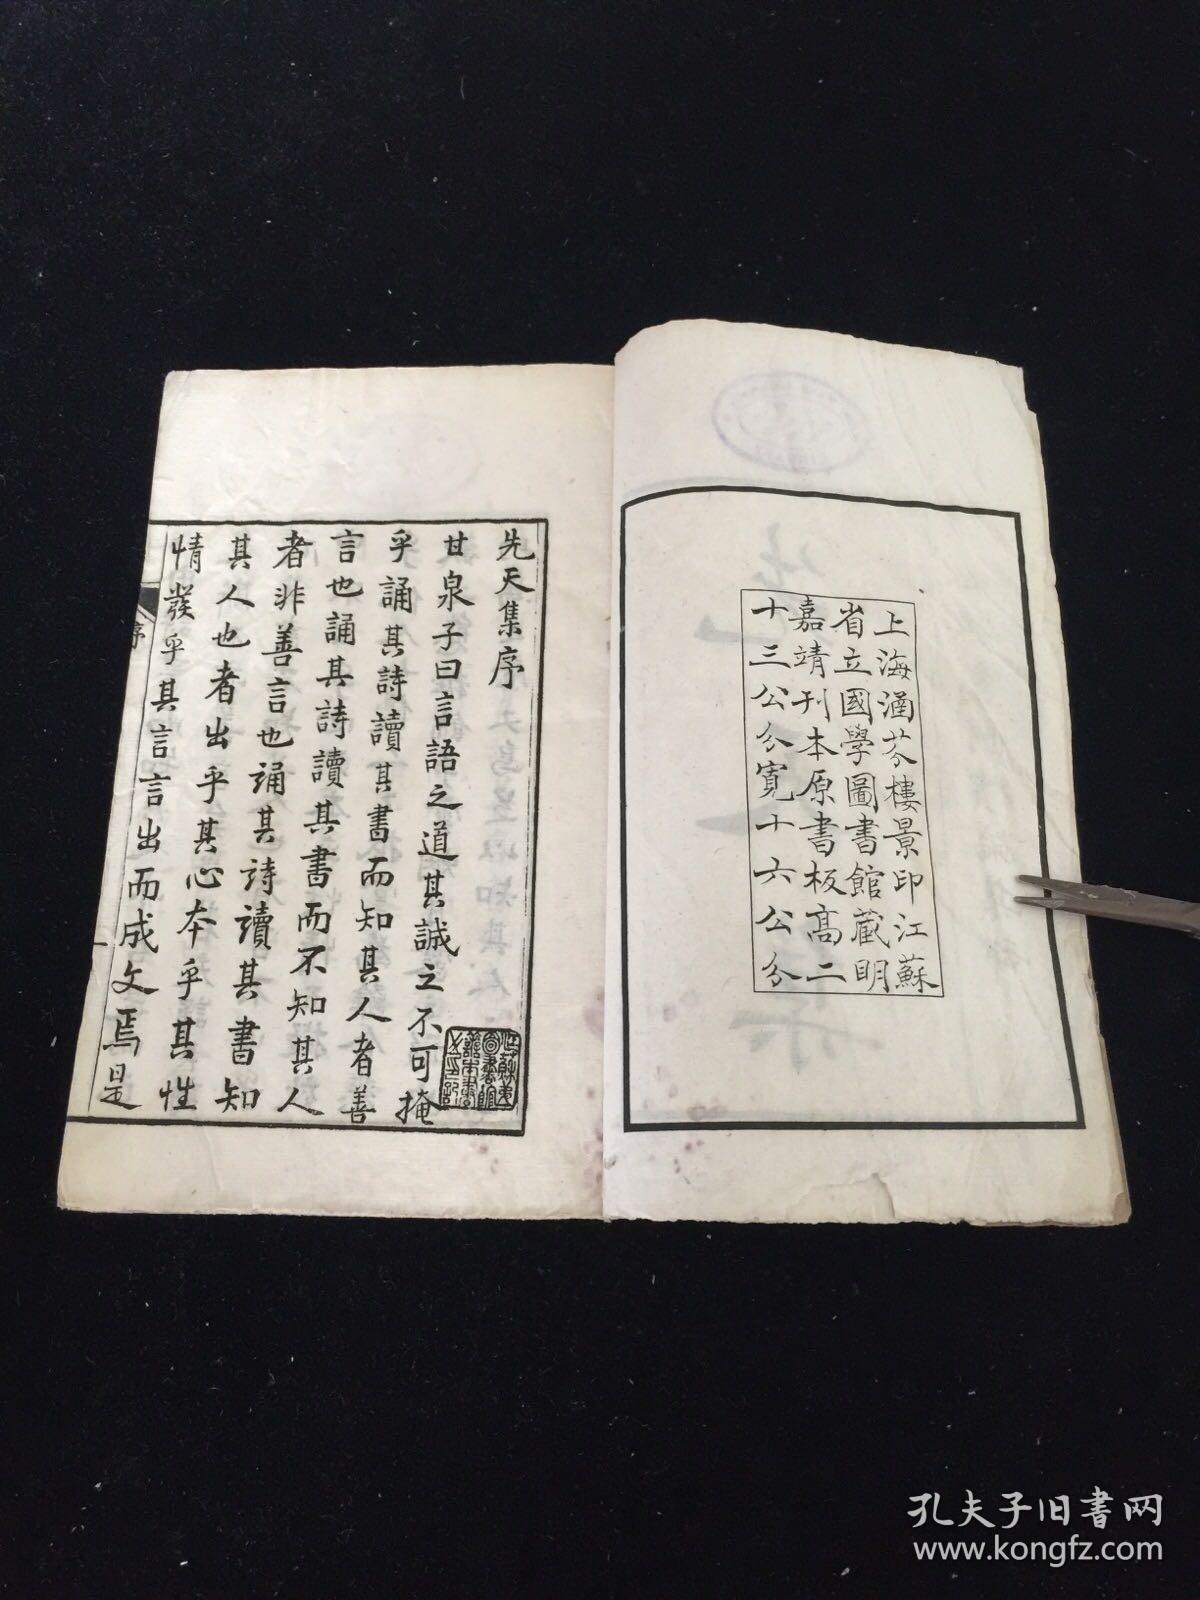 上海涵芬樓景印江蘇
省立國學圖書館藏明
嘉靖刊本原書板高二
十三公分寬十六公分
先天集序
甘泉子曰言語之道其誠之不可掩
乎誦其詩讀其書而知其人者善
言也誦其詩讀其書而不知其人
者非善言也誦其詩讀其書知
其人也者出乎其心本乎其性
情發乎其言言出而成文焉是
序
孔夫子旧书网
www.kongfz.com